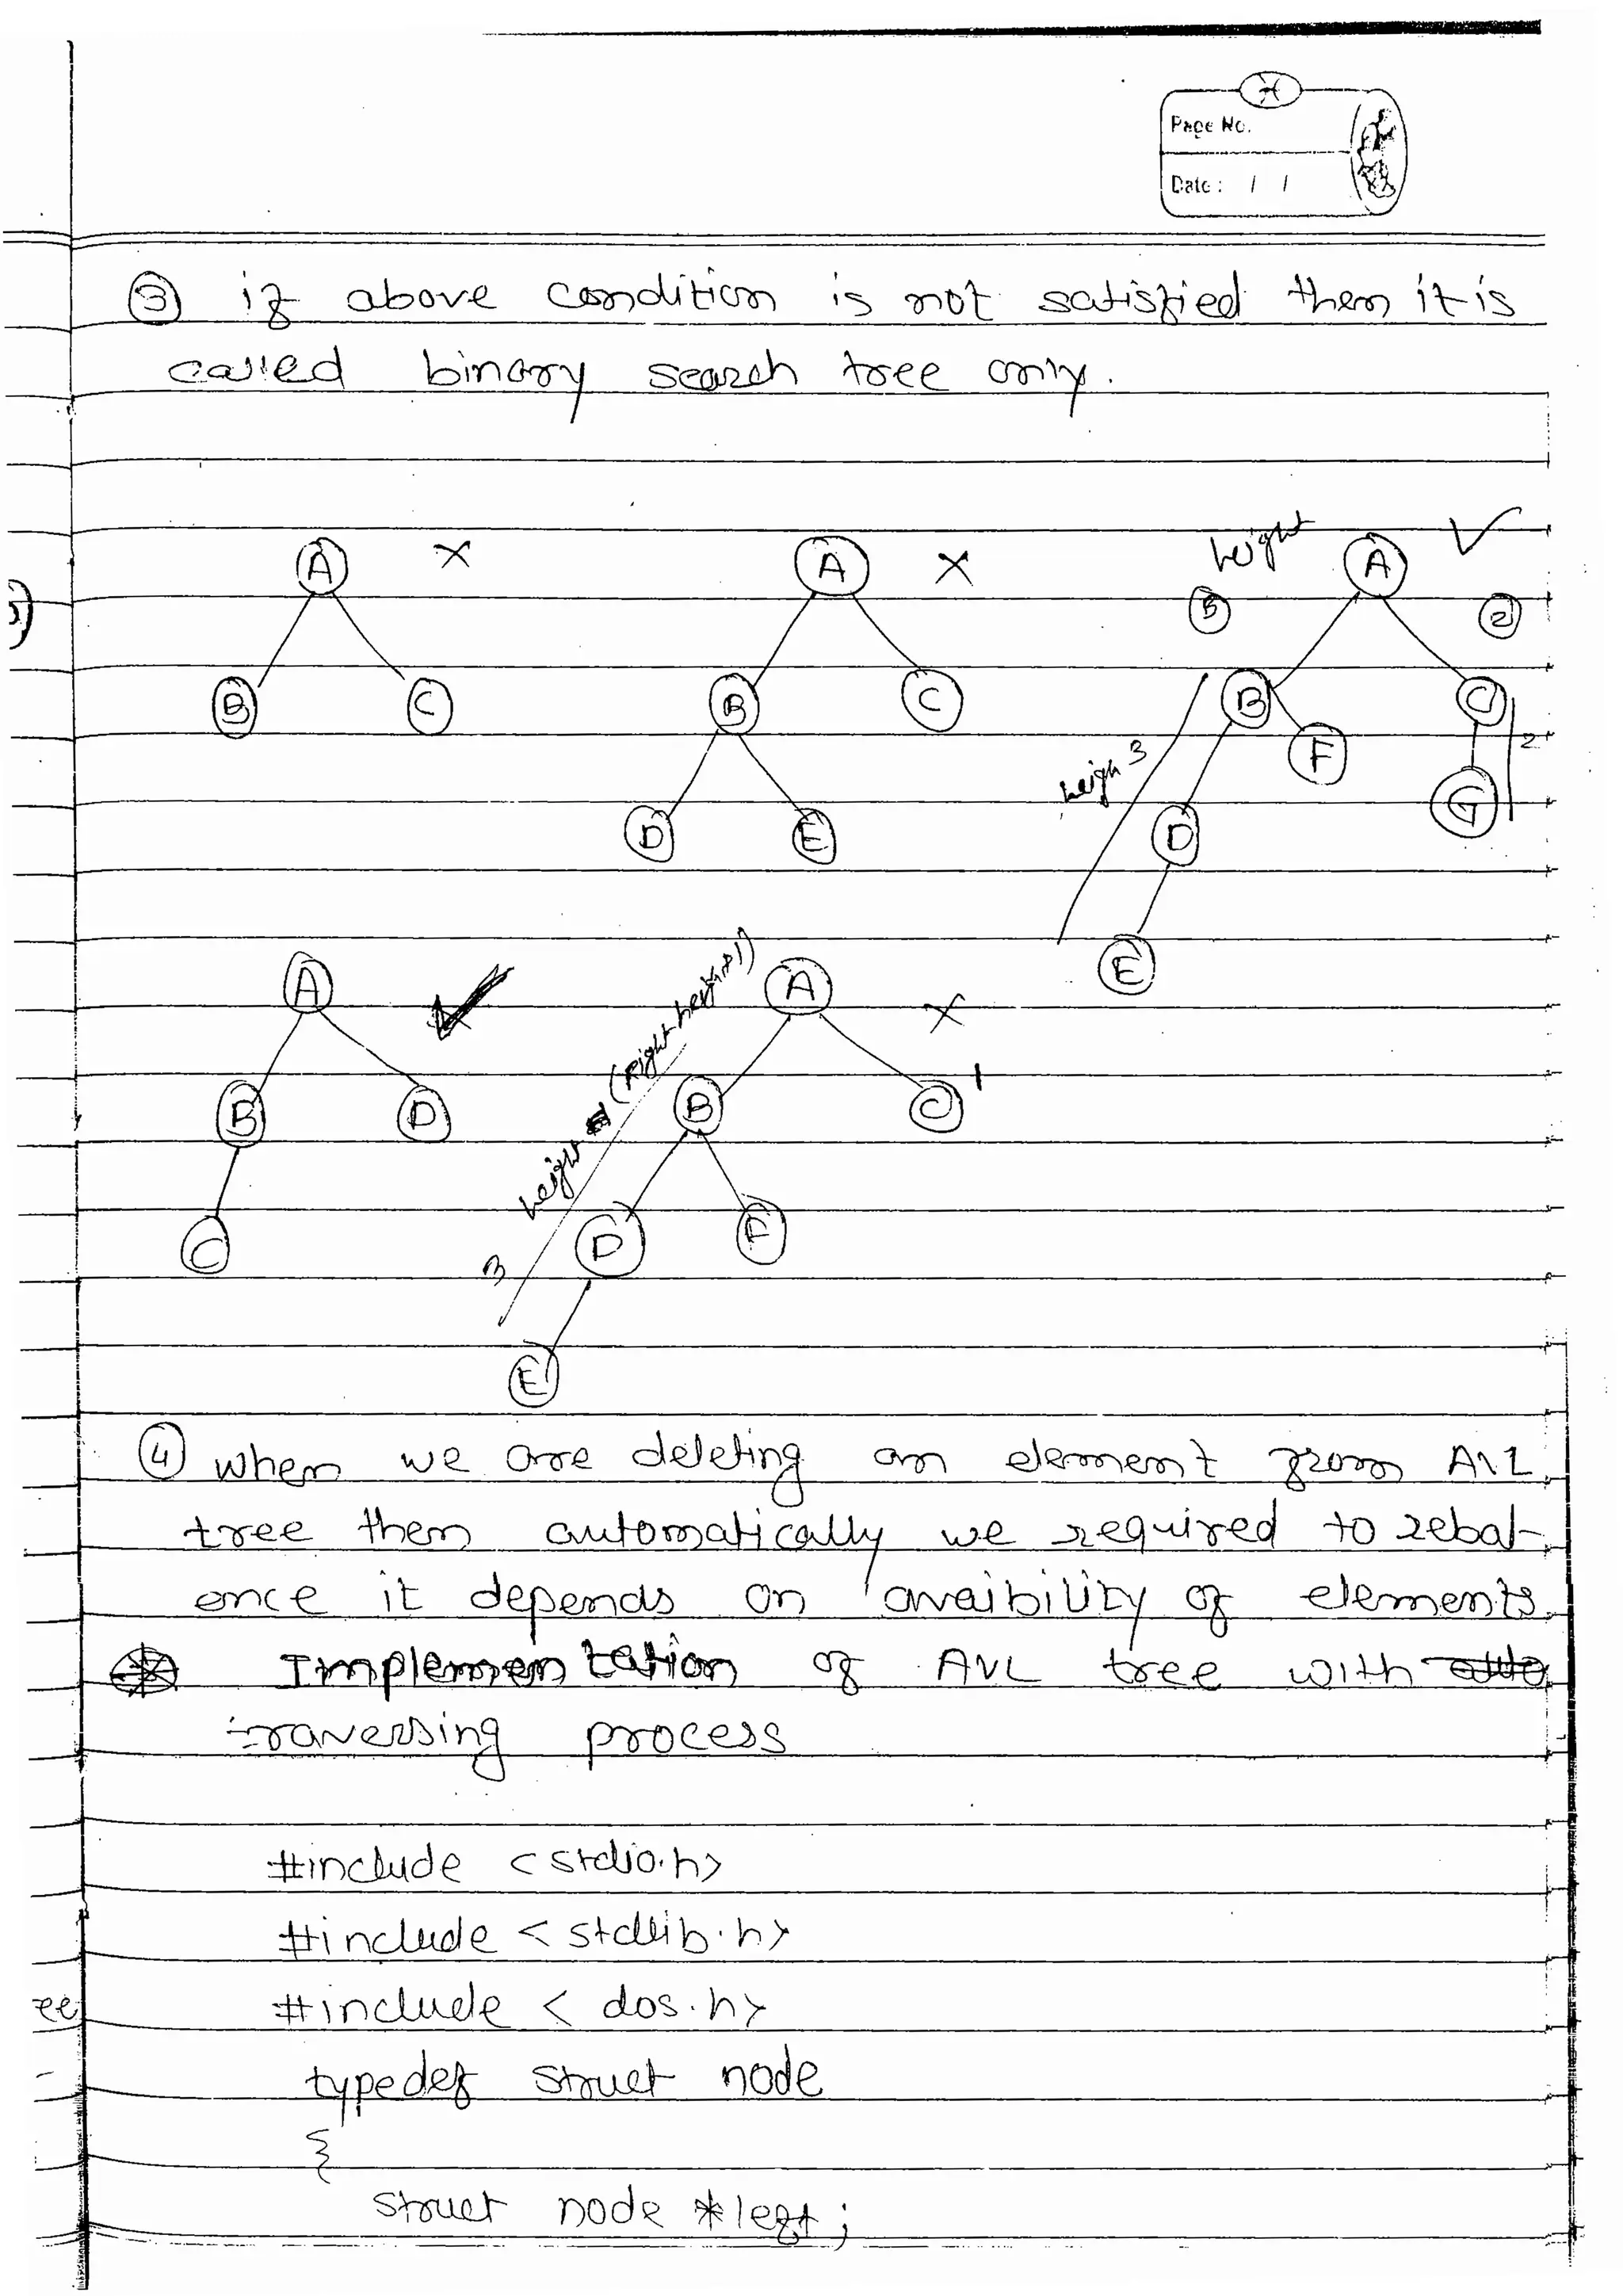 Page No.
Date : / /
③ if above condition is not satisfied then it is
called binary search tree only.
A ×
B C
A ×
B C
D E
height A ✓
B C
F
heigh 3
2
D G
E
A
B D
C
height (Right height+1)
A ×
B C 1
D F
3
E
④ when we are deleting an element from AVL
tree then automatically we required to rebal-
ence it depends on avaibility of elements
Implementation of AVL tree with
traversing process
#include <stdio.h>
#include <stdlib.h>
ee
#include < dos.h>
typedef struct node
{
struct node *left;